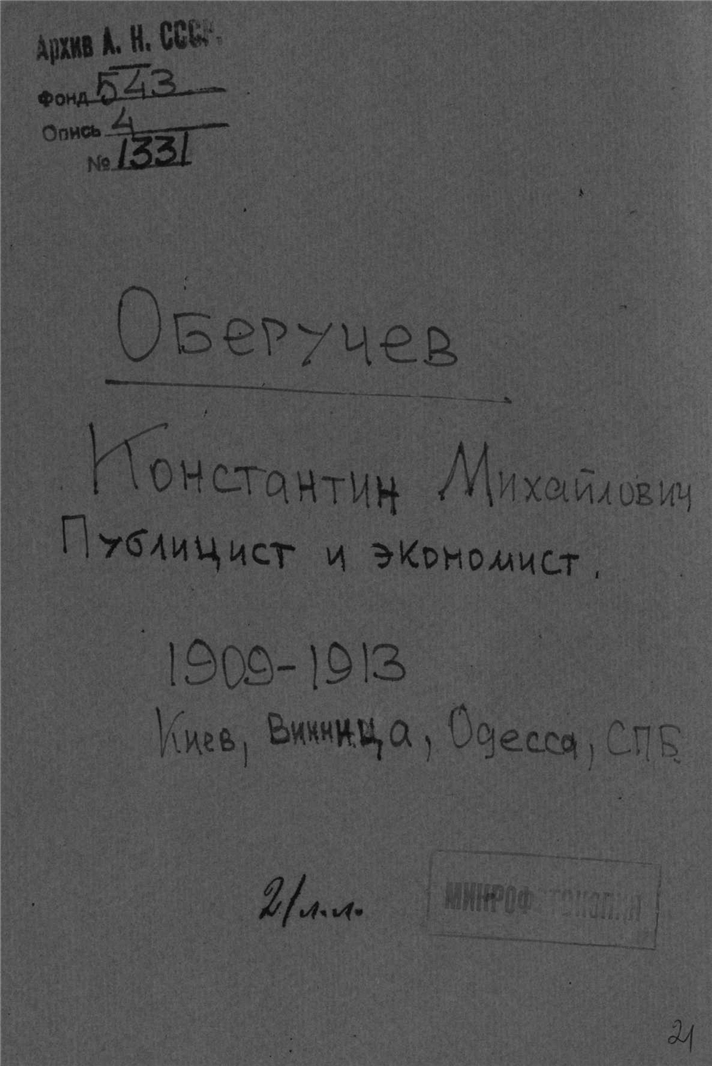 Архив А. Н. СССР.
Фонд 543
Опись 4
№ 1331
Оберучев
Константин Михайлович
Публицист и экономист.
1909-1913
Киев, Винница, Одесса, СПБ
21 л.л.
МИКРОФОТОКОПИЯ
21